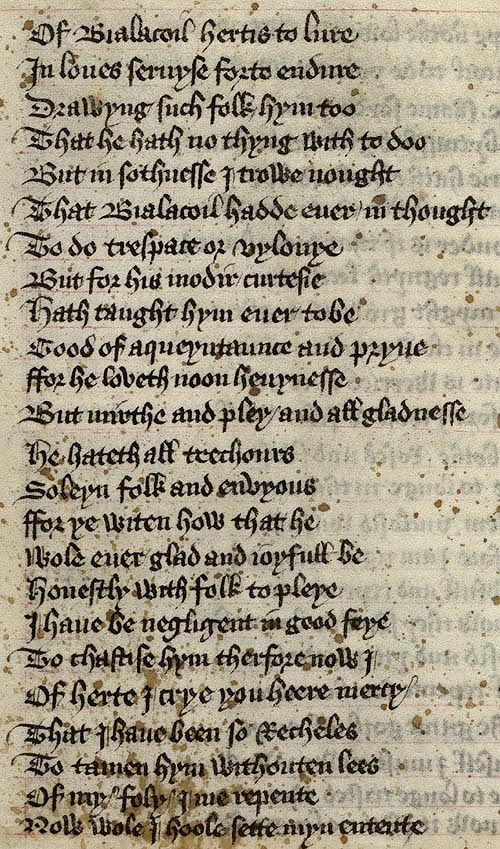 Of Bialacoil hertis to lure
In loues seruyse forto endure
Drawyng such folk hym too
That he hath no thyng with to doo
But in sothnesse I trowe nought
That Bialacoil hadde euer in thought
To do trespace or vylonye
But for his modir curtesie
Hath taught hym euer tobe
Good of aqueyntaunce and pryue
ffor he loveth noon heuynesse
But mirthe and pley and all gladnesse
He hateth all trechours
Soleyn folk and envyous
ffor ye witen how that he
Wole euer glad and ioyfull be
Honestly with folk to pleye
I haue be negligent in good feye
To chastise hym therfore now I
Of herte I crye you heere mercy
That I haue been so Recheles
To tamen hym withouten lees
Of my foly I me repente
Now wole I hoole sette myn entente